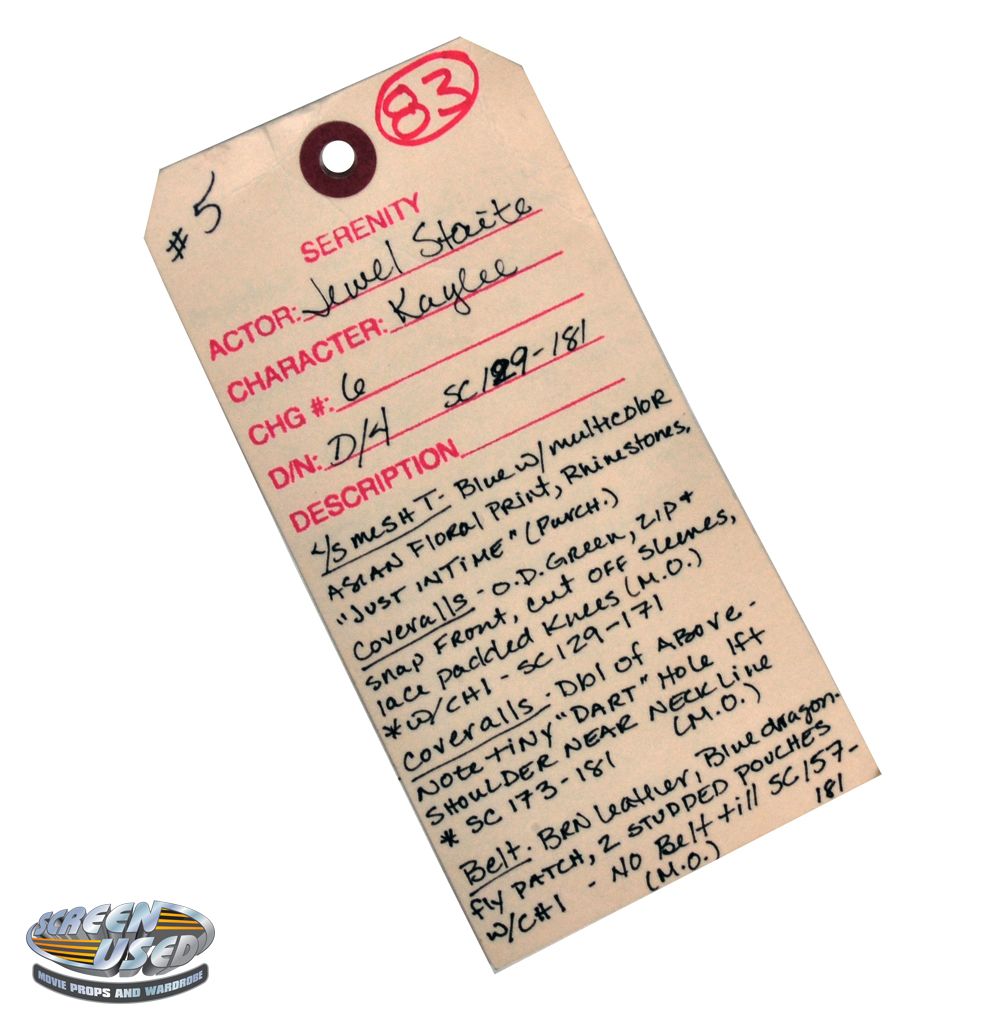 83
#5
SERENITY
ACTOR: Jewel Staite
CHARACTER: Kaylee
CHG #: 6
D/N: D/4 SC129-181
DESCRIPTION
s/s mesh T- Blue w/ multicolor
ASIAN Floral Print, Rhinestones,
"JUST IN TIME" (PURCH.)
Coveralls - O.D. Green, zip +
snap FRONT, cut OFF sleeves,
lace padded Knees (M.O.)
*w/CH1 - SC129-171
Coveralls - Dbl of Above -
Note tiny "DART" Hole lft
SHOULDER NEAR NECKLINE
* SC 173-181 (M.O.)
Belt. BRN leather, Blue dragon-
fly PATCH, 2 STUDDED POUCHES
w/CH1 - NO Belt till SC157-
181
(M.O.)
SCREEN
USED
MOVIE PROPS AND WARDROBE